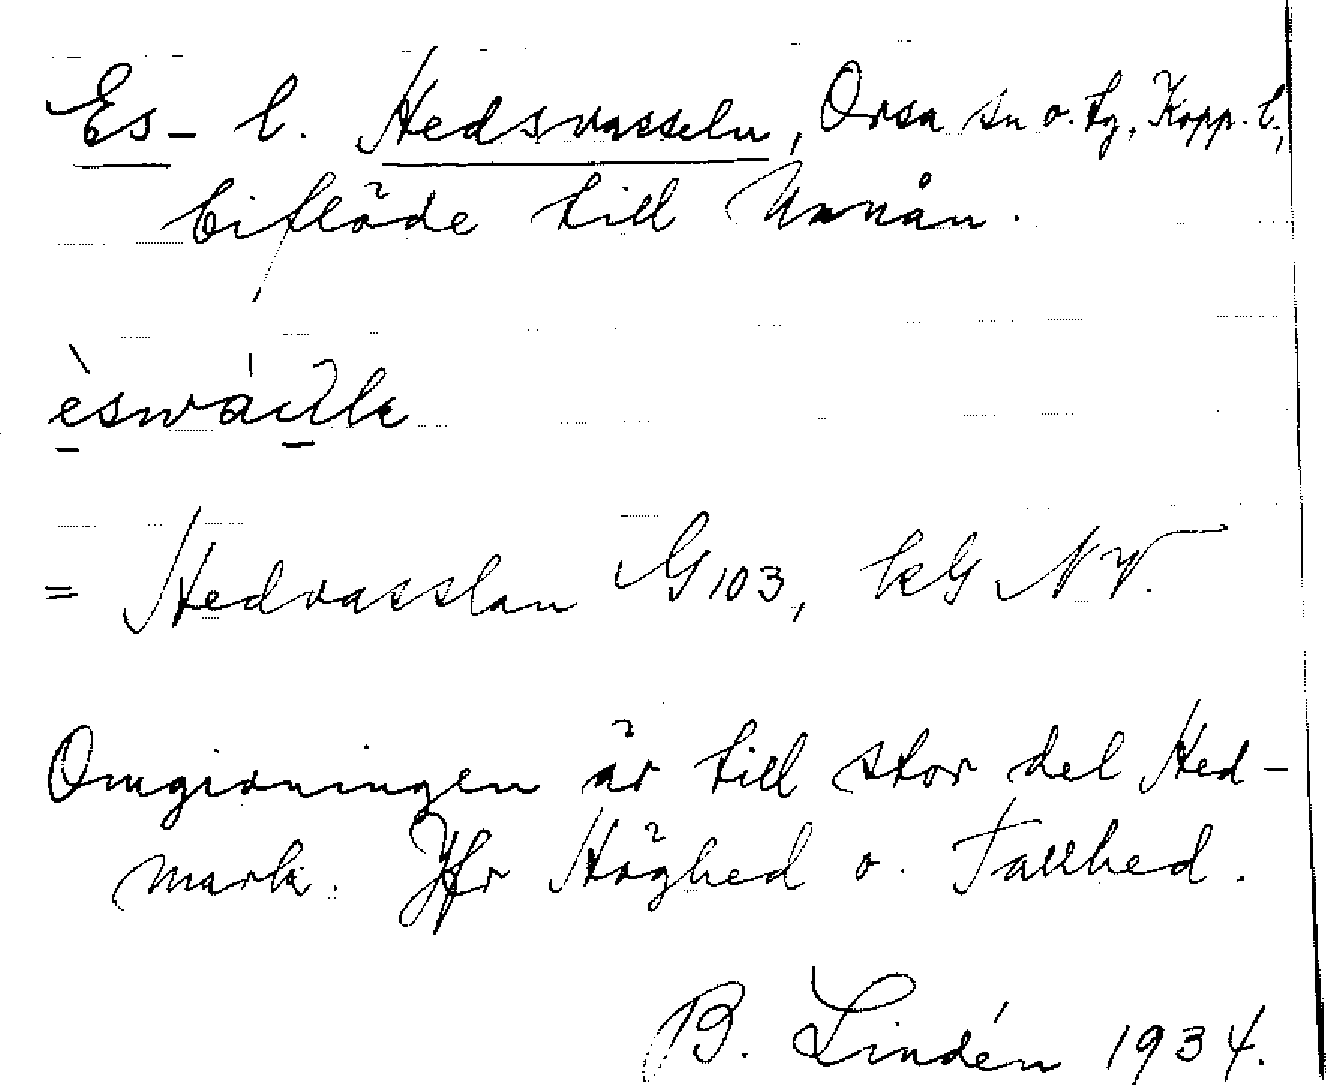 Es- l. Hedsvasseln, Orsa sn o. tg, Kopp. l.,
biflöde till Unnån.
= Hedvasslan G 103, kG NV.
Omgivningen är till stor del Hed-
mark. Jfr Höghed o. Tallhed.
B. Lindén 1934.